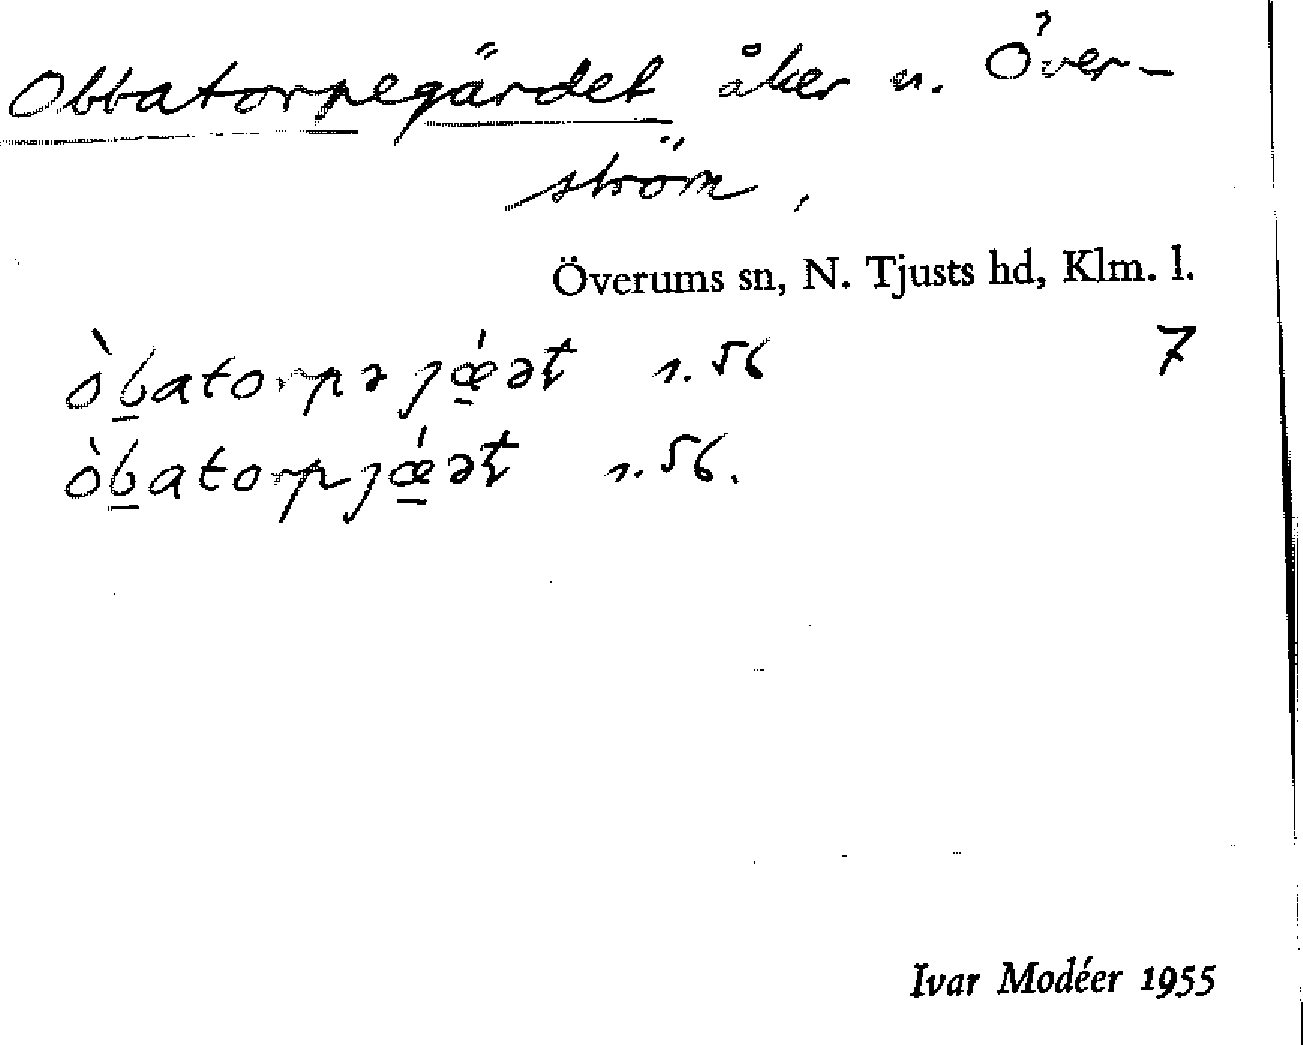 Obbatorpegärdet åker n. Över-
ström,
Överums sn, N. Tjusts hd, Klm. l.
òb̲atorpə ȷǽ̲ət s. 56 7
òb̲atorpȷǽ̲ət s. 56.
Ivar Modéer 1955